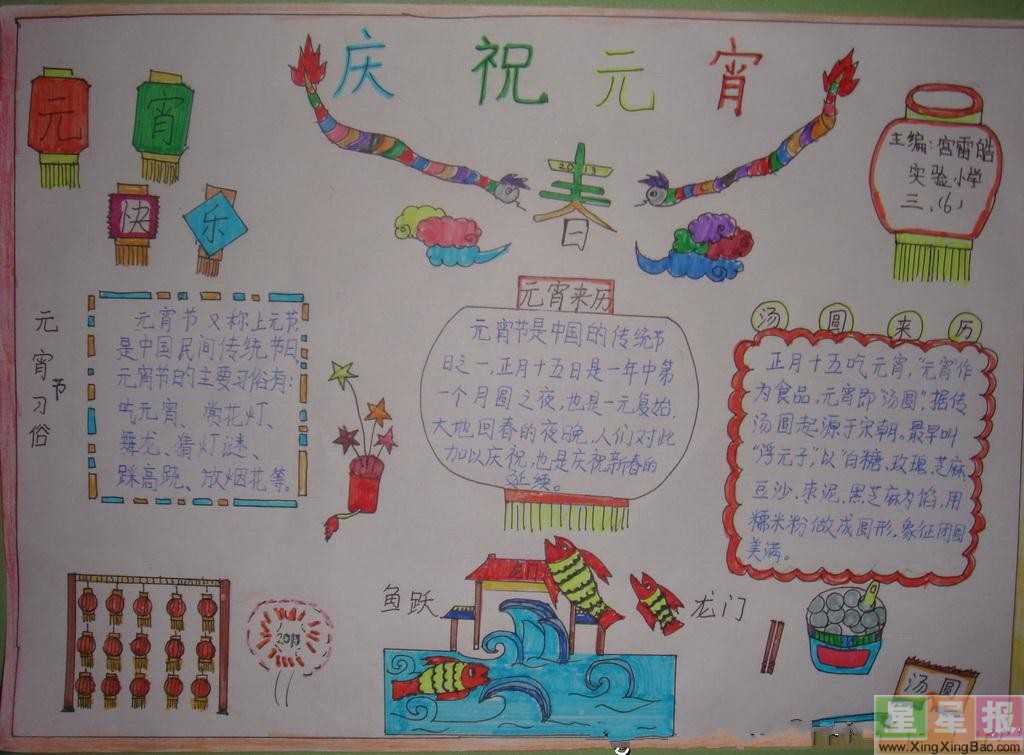 庆祝元宵
元
宵
快
乐
2013
春
日
主编:宫雷皓
实验小学
三、(6)
元宵节习俗
元宵节又称上元节
是中国民间传统节日
元宵节的主要习俗有:
吃元宵、赏花灯、
舞龙、猜灯谜、
踩高跷、放烟花等。
元宵来历
元宵节是中国的传统节
日之一,正月十五日是一年中第
一个月圆之夜,也是一元复始,
大地回春的夜晚,人们对此
加以庆祝,也是庆祝新春的
延续。
汤圆来历
正月十五吃元宵,“元宵作
为食品,元宵即“汤圆”,据传
汤圆起源于宋朝,最早叫
“浮元子”以“白糖、玫瑰、芝麻
豆沙、枣泥、黑芝麻为馅,用
糯米粉做成圆形,象征团圆
美满。
2013
鱼跃
龙门
汤圆
星星报
www.XingXingBao.com